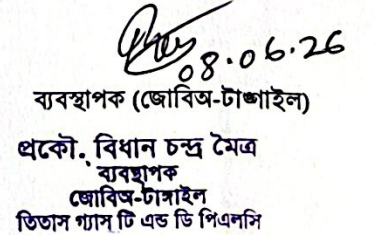 08.06.26
ব্যবস্থাপক (জোবিঅ-টাঙ্গাইল)
প্রকৌ. বিধান চন্দ্র মৈত্র
ব্যবস্থাপক
জোবিঅ-টাঙ্গাইল
তিতাস গ্যাস টি এন্ড ডি পিএলসি